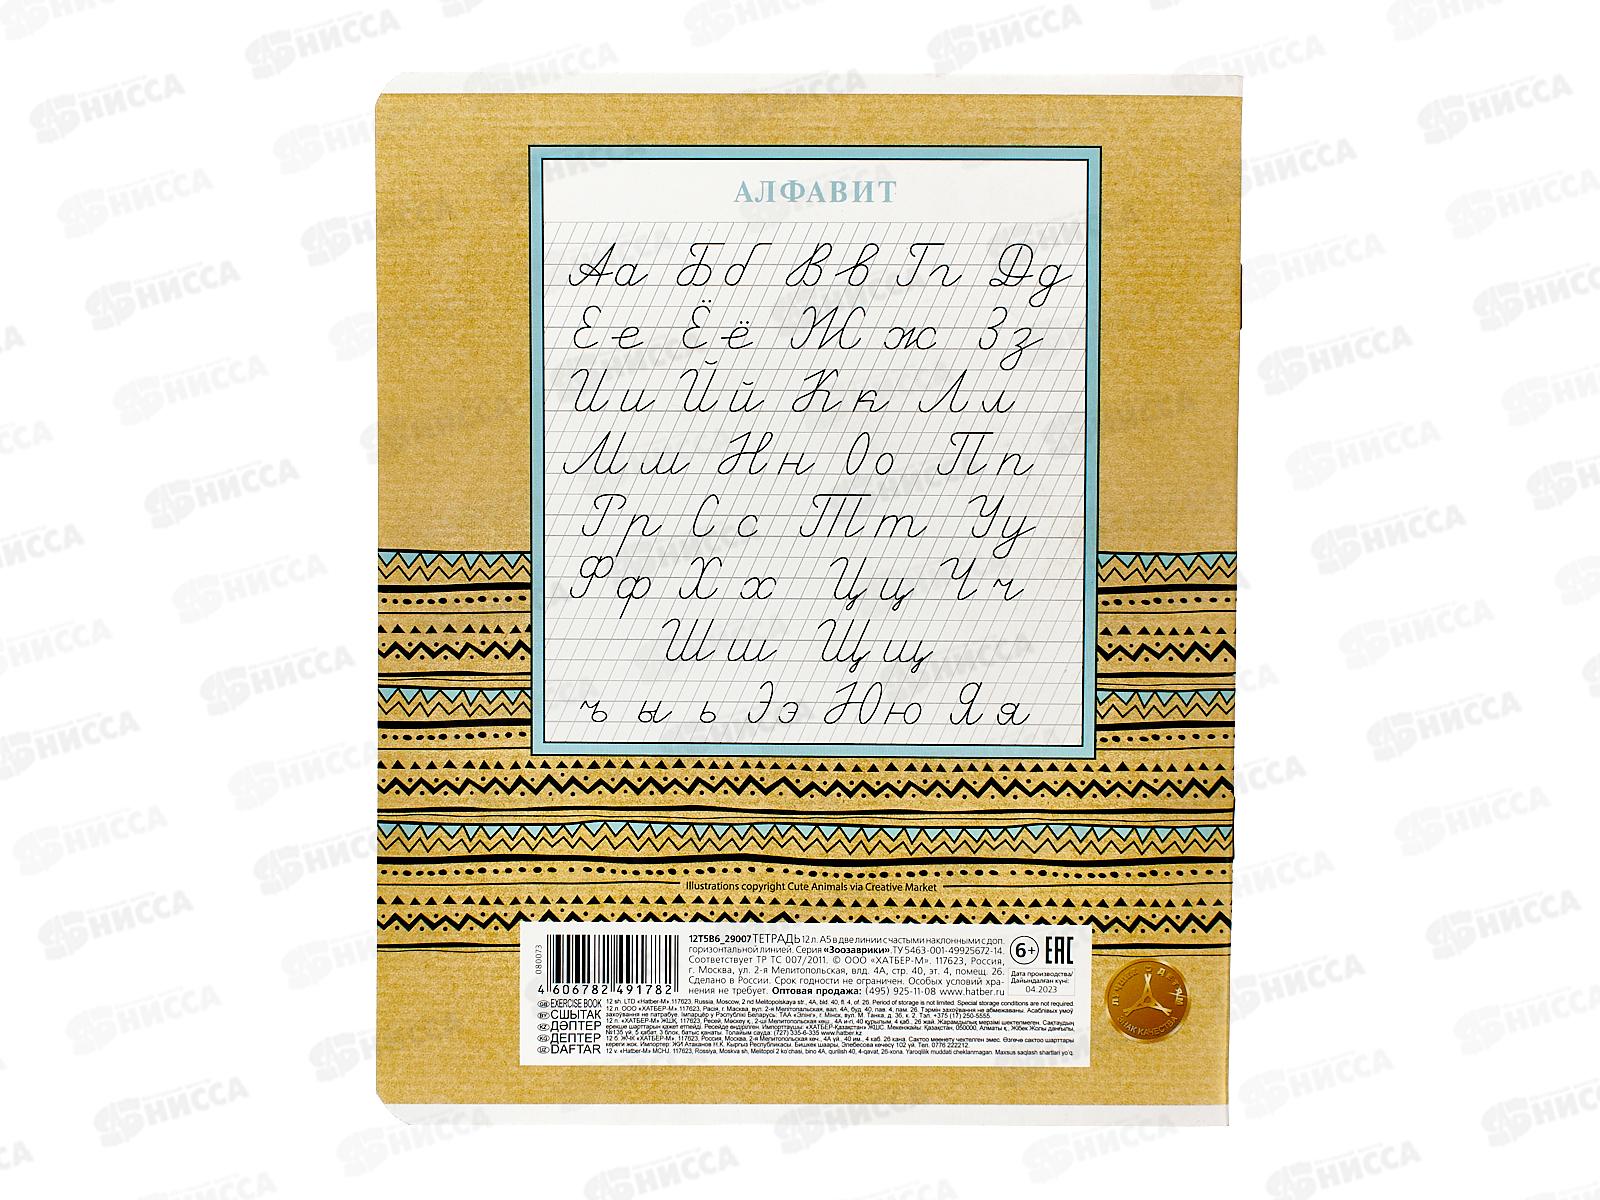 АЛФАВИТ
Аа Бб Вв Гг Дд
Ее Ёё Жж Зз
Ии Йй Кк Лл
Мм Нн Оо Пп
Рр Сс Тт Уу
Фф Хх Цц Чч
Шш Щщ
ъ ы ь Ээ Юю Яя
Illustrations copyright Cute Animals via Creative Market
080073
4 606782 491782
12Т5В6_29007 ТЕТРАДЬ 12 л. А5 в две линии с частыми наклонными с доп.
горизонтальной линией. Серия "Зоозаврики". ТУ 5463-001-49925672-14.
Соответствует ТР ТС 007/2011. © ООО «ХАТБЕР-М». 117623, Россия,
г. Москва, ул. 2-я Мелитопольская, влд. 4А, стр. 40, эт. 4, помещ. 26.
Сделано в России. Срок годности не ограничен. Особых условий хра-
нения не требует. Оптовая продажа: (495) 925-11-08 www.hatber.ru
6+ EAC
Дата производства/
Дайындалған күні:
04.2023
EXERCISE BOOK 12 sh. LTD «Hatber-M».117623, Russia, Moscow, 2 nd Melitopolskaya str., 4A, bld. 40, fl. 4, of. 26. Period of storage is not limited. Special storage conditions are not required.
СШЫТАК
ДӘПТЕР
ДЕПТЕР
DAFTAR 12 v. «Hatber-M» MCHJ. 117623, Rossiya, Moskva sh, Melitopol 2 ko'chasi, bino 4A, qurilish 40, 4-qavat, 26-xona. Yaroqlilik muddati cheklanmagan. Maxsus saqlash shartlari yo'q.
НИССА